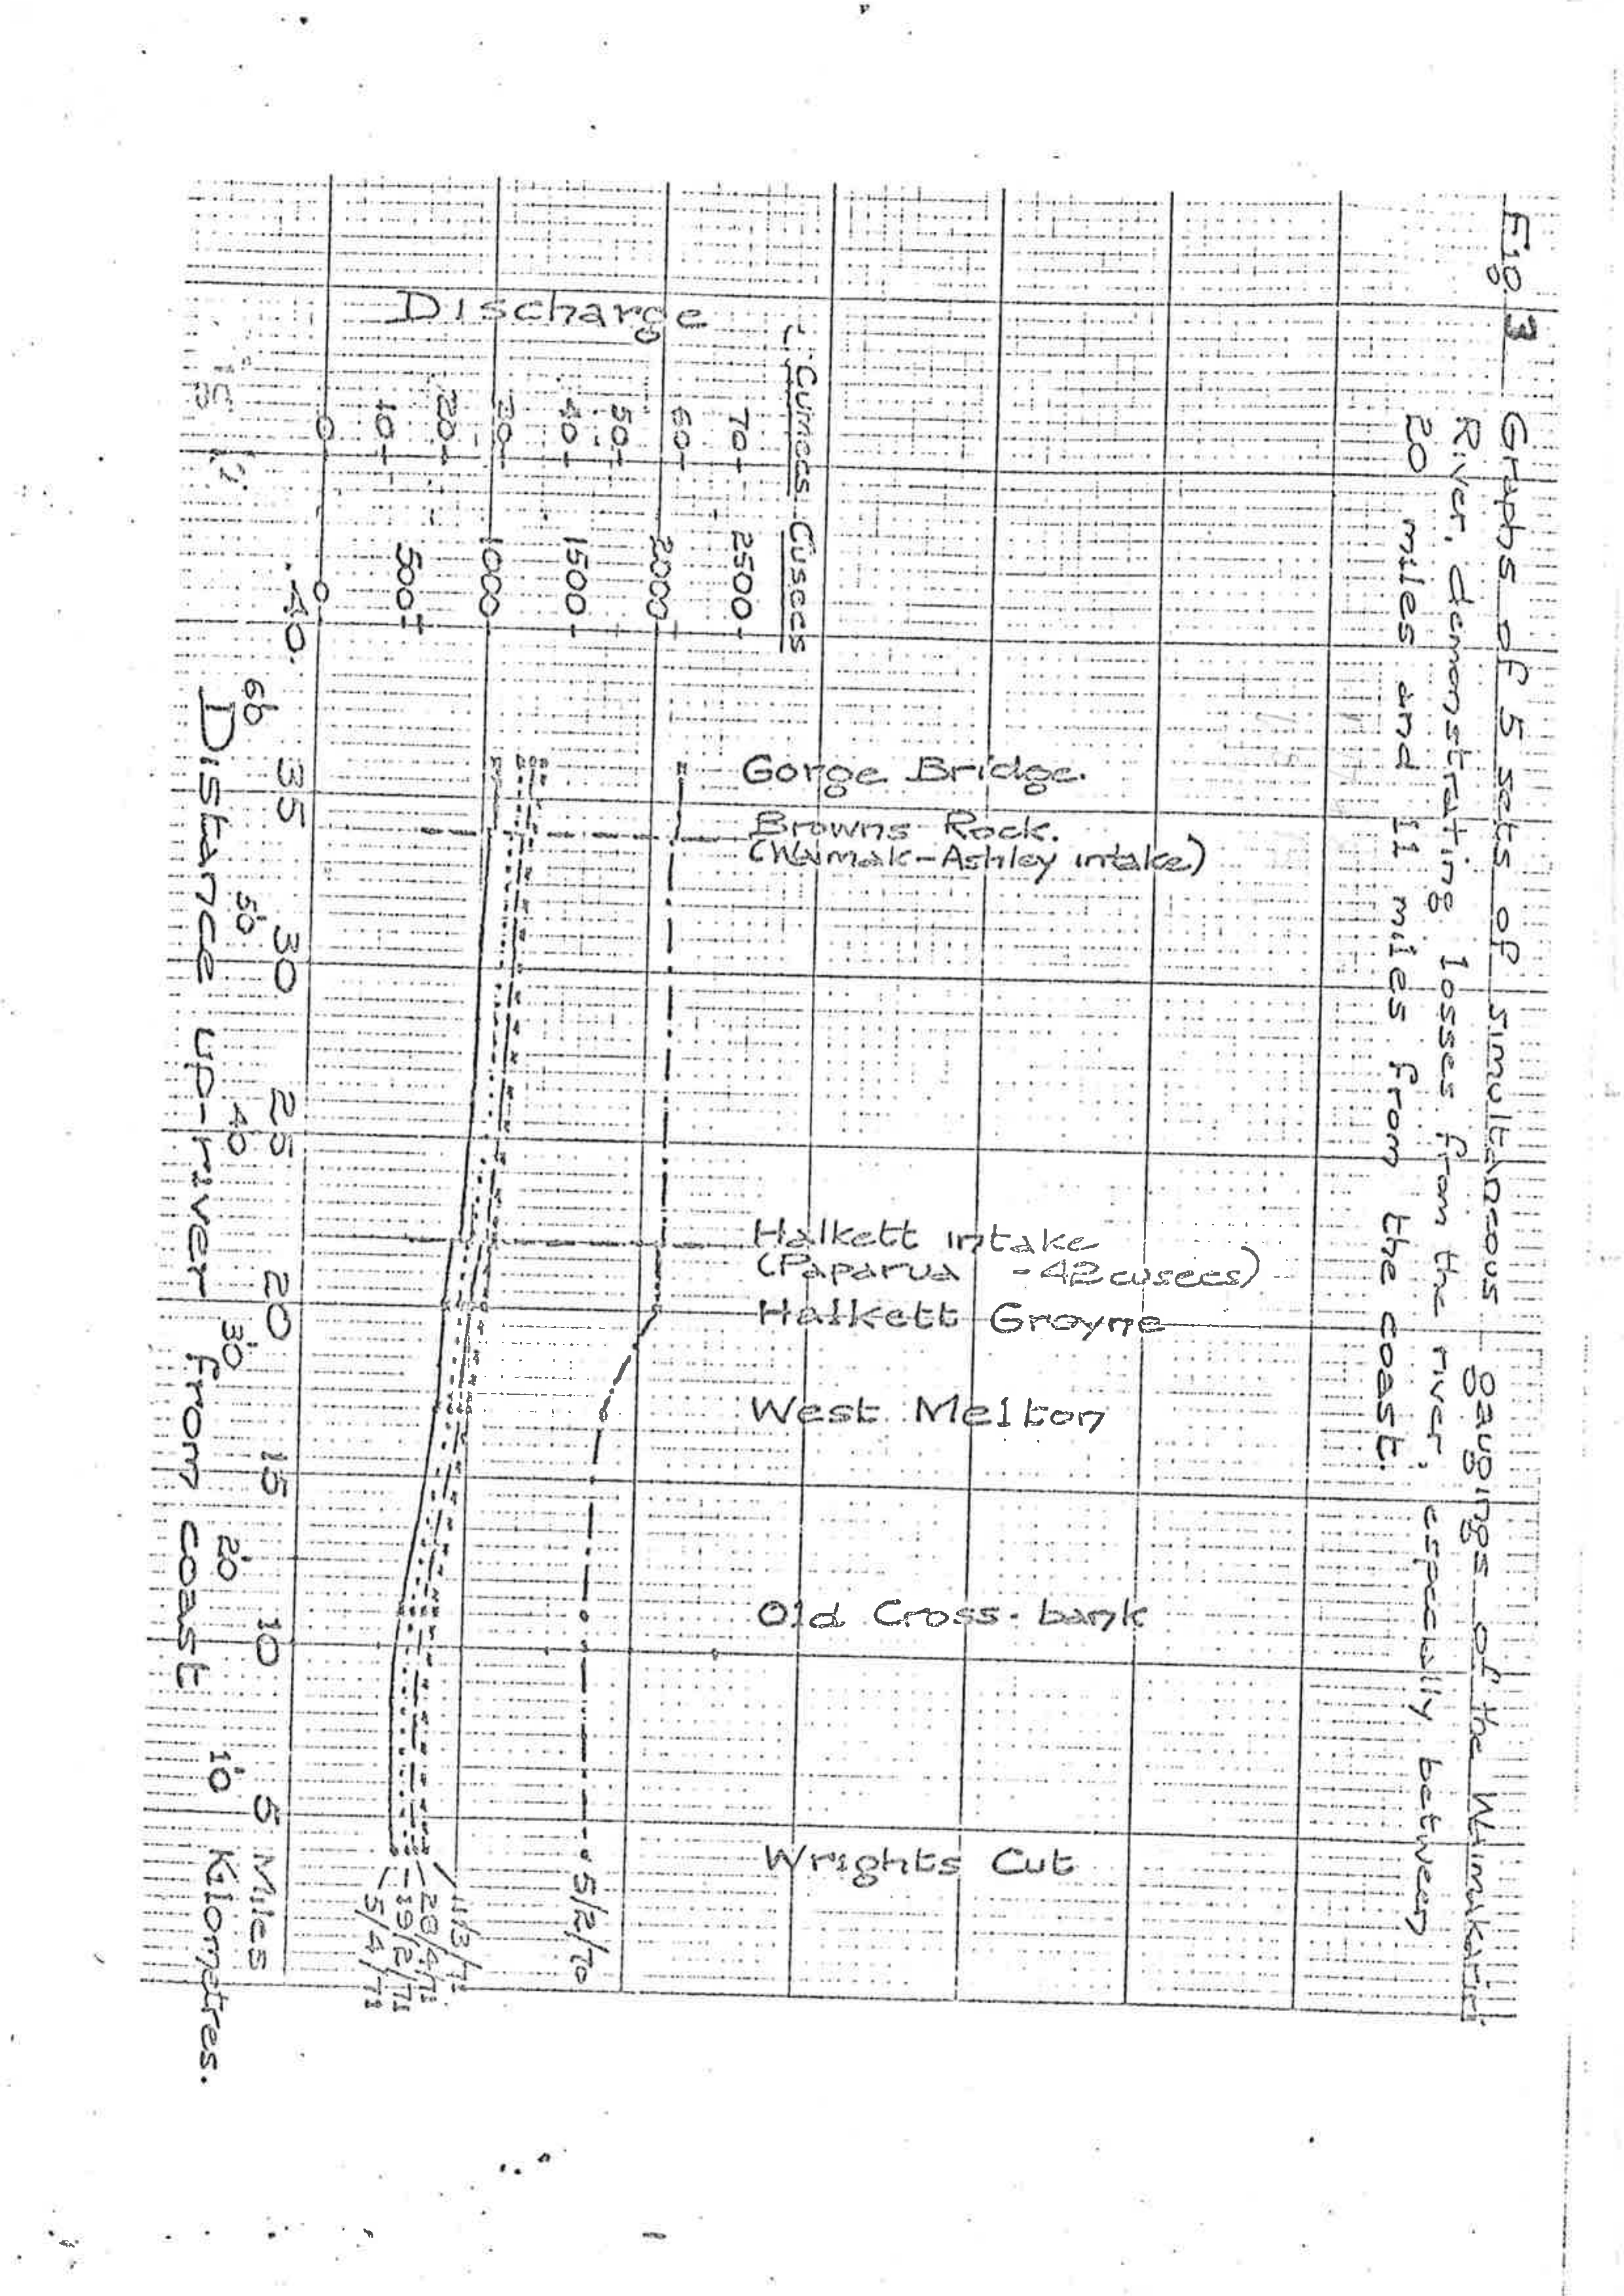 Fig. 3 Graphs of 5 sets of simultaneous gaugings of the Waimakariri
River, demonstrating losses from the river, especially between
20 miles and 11 miles from the coast.
Discharge
Cumecs Cusecs
70 2500
60 2000
50
40 1500
30 1000
20
10 500
0 0
Gorge Bridge.
Browns Rock.
(Waimak-Ashley intake)
Halkett intake
(Paparua - 42 cusecs)
Halkett Groyne
West Melton
Old Cross-bank
Wrights Cut
5/2/70
11/3/71
28/4/71
19/2/71
5/4/71
40 35 30 25 20 15 10 5 Miles
60 50 40 30 20 10 Kilometres.
Distance up-river from coast